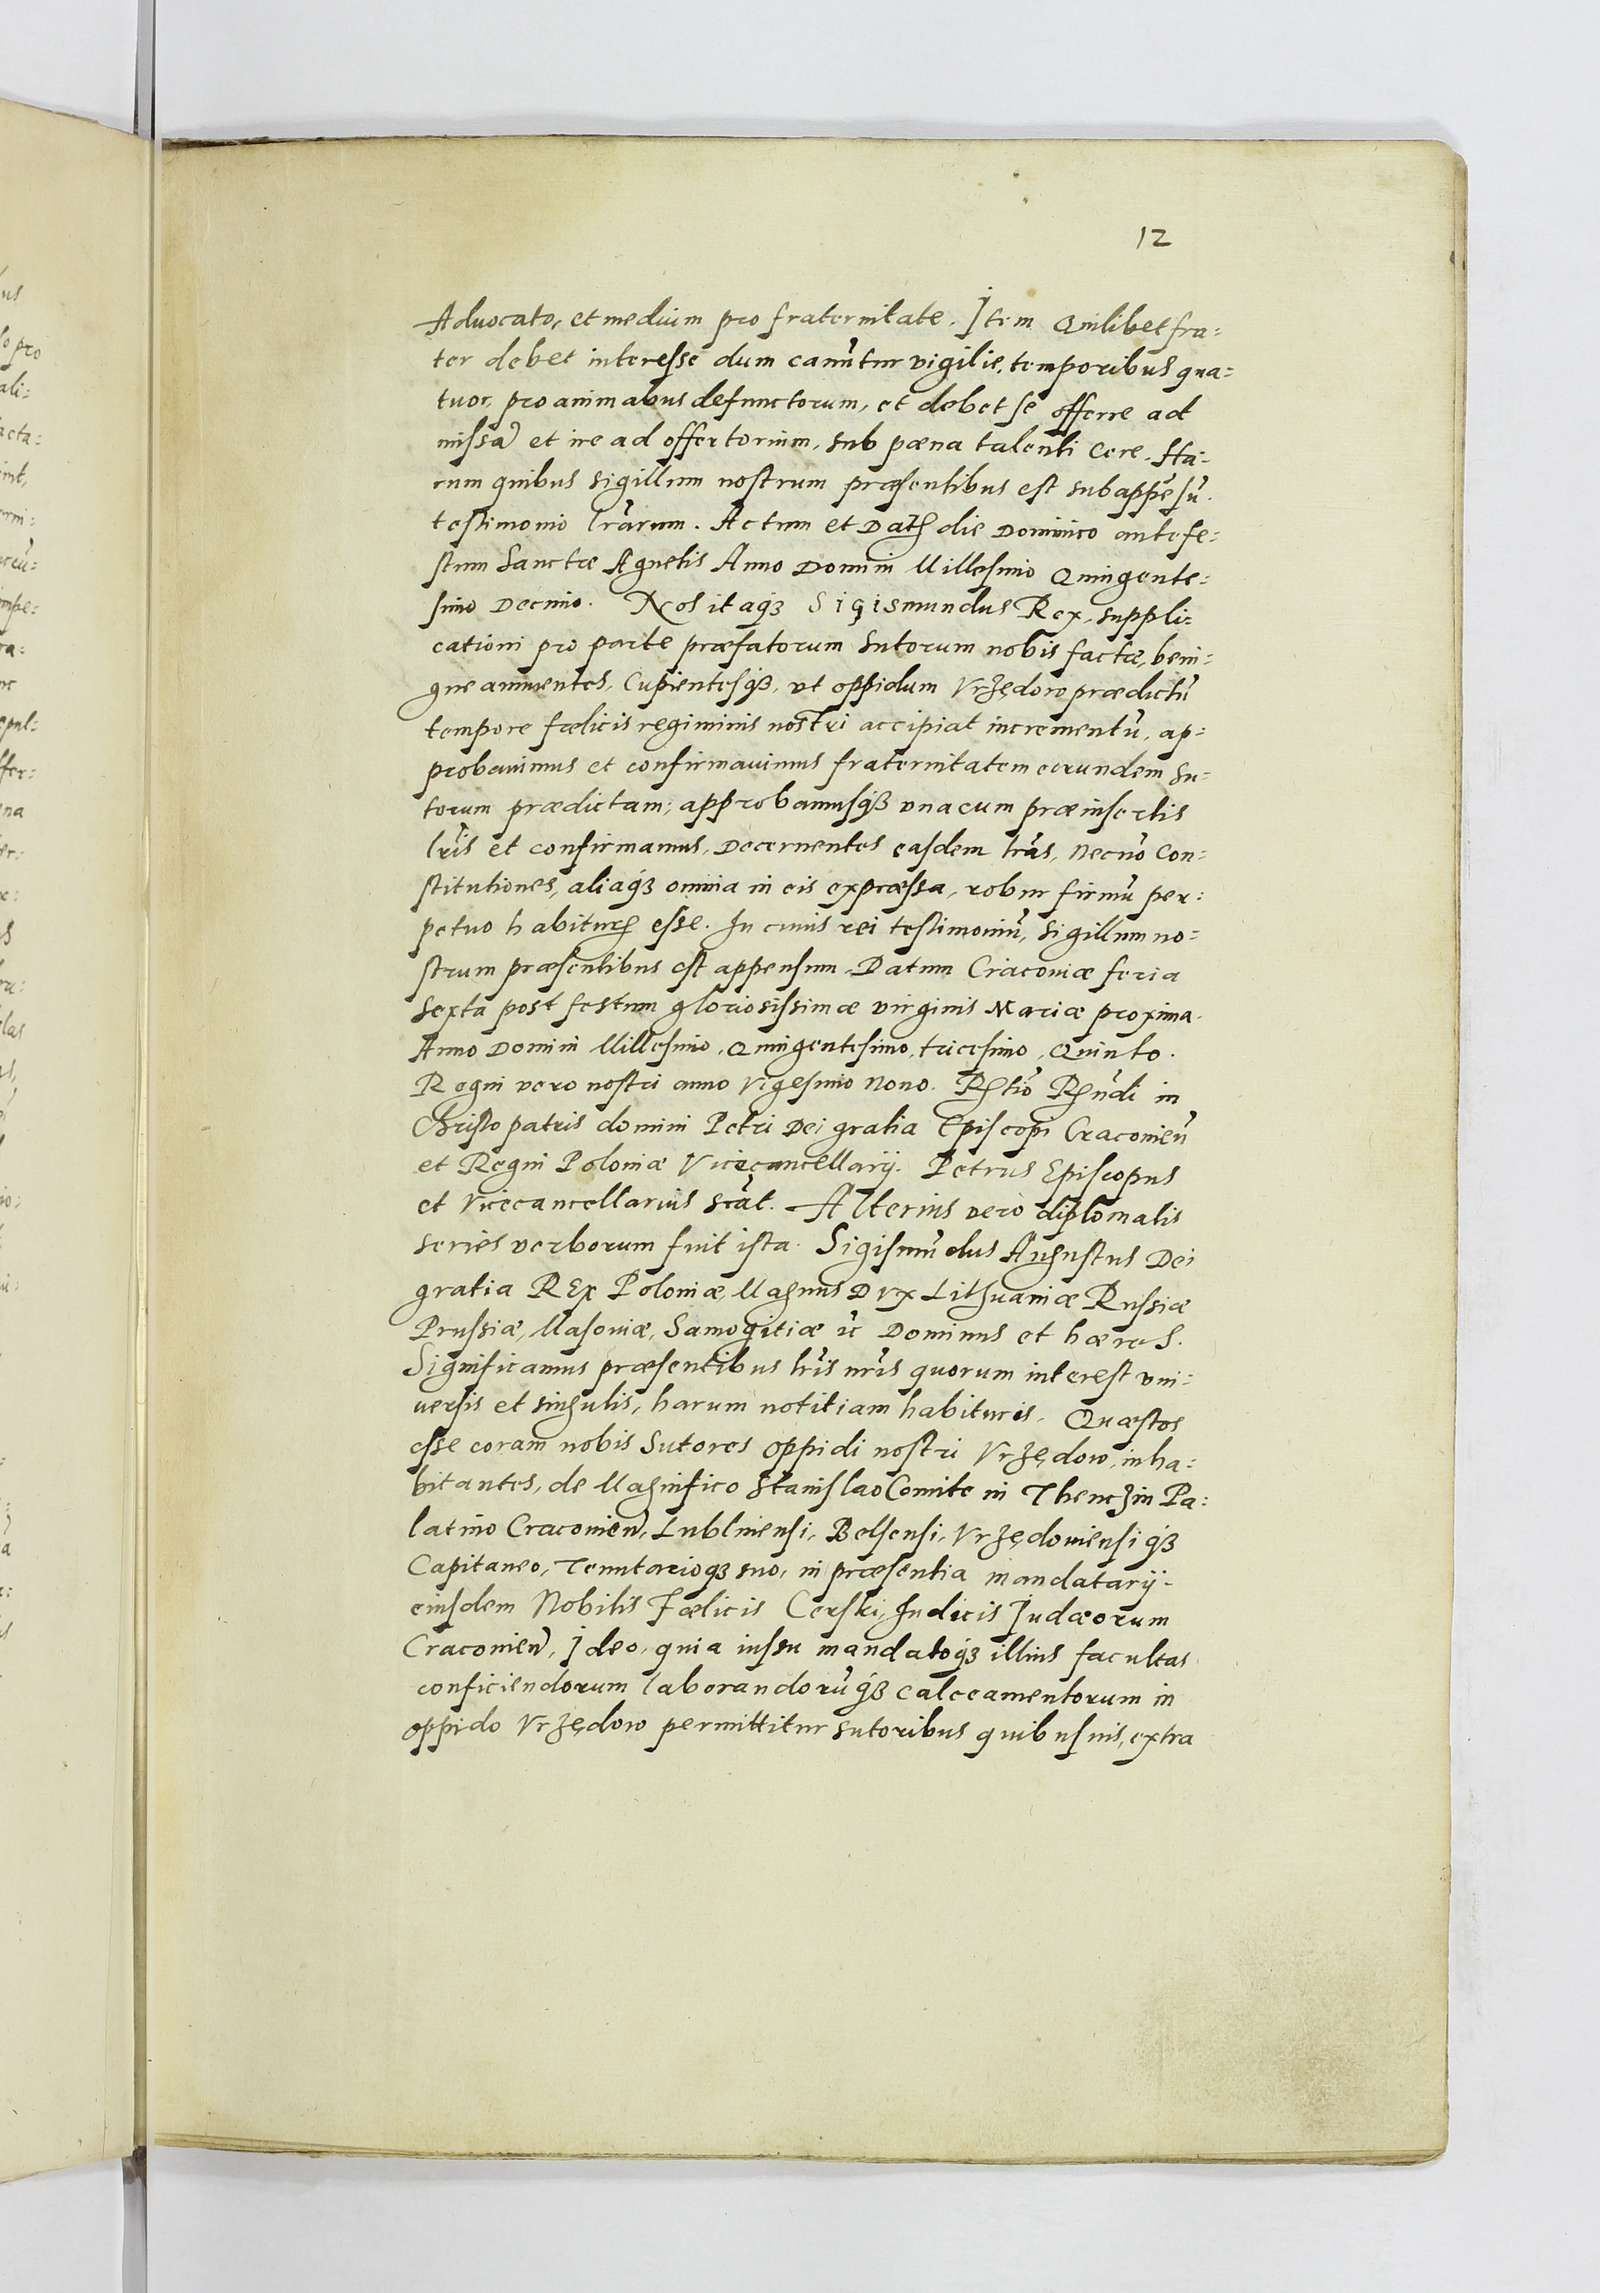 12
Aduocato, et medium pro fraternitate. Item Quilibet fra=
ter debet interesse dum canūtur vigilie, temporibus qua=
tuor, pro animabus defunctorum, et debet se offerre ad
missā et ire ad offertorium, sub pæna talenti Cere. Ha=
rum quibus sigillum nostrum præsentibus est subappēsū.
testimonio lrārum. Actum et Datꝝ die Dominico ante fe=
stum Sanctæ Agnetis Anno Domini Millesimo Quingente=
simo Decimo. Nos itaqꝫ Sigismundus Rex, suppli=
cationi pro parte præfatorum Sutorum nobis factæ, beni=
gne annuentes, Cupientesqꝫ, vt oppidum Vrzędow prædictū
tempore fælicis regiminis nostri accipiat incrementū, ap=
probauimus et confirmauimus fraternitatem eorundem Su=
torum prædictam; approbamusqꝫ vna cum præinsertis
lrīs et confirmamus, Decernentes easdem lrās, necnō Con=
stitutiones, aliaqꝫ omnia in eis expræssa, robur firmū per=
petuo habiturꝝ esse. In cuius rei testimoniū, sigillum no=
strum præsentibus est appensum. Datum Cracoviæ feria
sexta post festum gloriosissimæ virginis Mariæ proxima.
Anno Domini Millesimo, Quingentesimo, tricesimo, Quinto.
Regni vero nostri anno Vigesimo Nono. Rꝝtiō Rꝝndi in
Christo patris domini Petri Dei gratia Episcopi Cracouien̄
et Regni Poloniæ Vicecancellarij. Petrus Episcopus
et Vicecancellarius scāt. Alterius vero diplomatis
series verborum fuit ista. Sigismūdus Augustus Dei
gratia REx Poloniæ, Magnus Dvx Lithuaniæ Russiæ
Prussiæ, Masouiæ, Samogitiæ ꝛc̄ Dominus et hæres.
Significamus præsentibus lrīs nrīs quorum interest vni=
uersis et singulis, harum notitiam habituris. Quæstos
esse coram nobis Sutores oppidi nostri Vrzędow, inha=
bitantes, de Magnifico Stanislao Comite in Thenczin Pa=
latino Cracouien̄, Lublinensi, Belsensi, Vrzędouiensi qꝫ
Capitaneo, Tenutarioqꝫ suo, in præsentia mandatarij
eiusdem Nobilis Fælicis Cerski, Iudicis Iudæorum
Cracouien̄, Ideo, quia iussu mandatoqꝫ illius facultas
conficiendorum laborandorūqꝫ calceamentorum in
oppido Vrzędow permittitur sutoribus quibusuis, extra